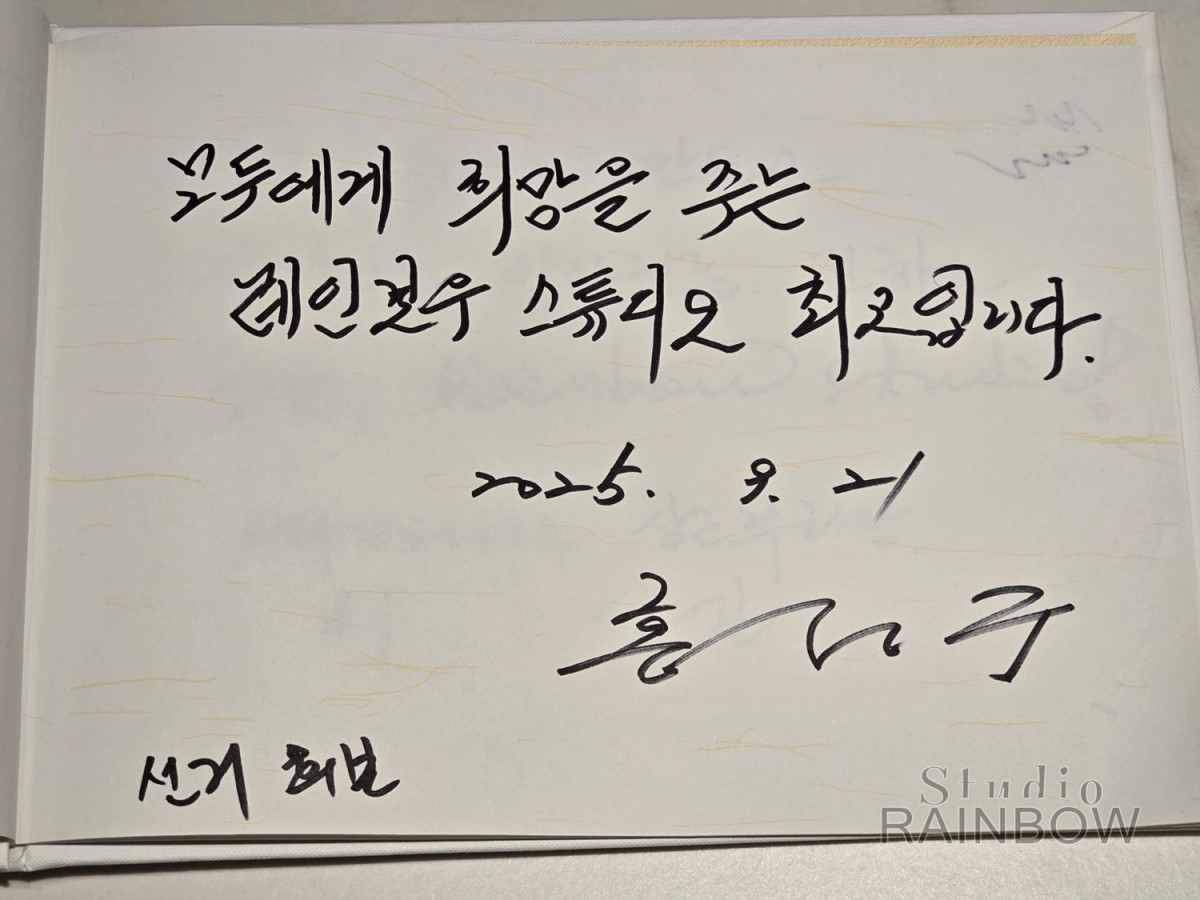 모두에게 희망을 주는
레인보우 스튜디오 최고입니다.
2025. 9. 21
홍
선거
Studio
RAINBOW